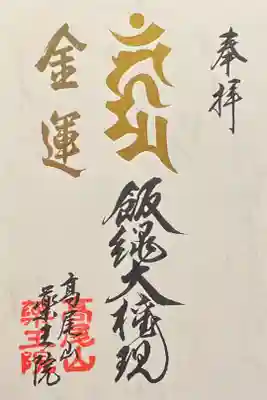 奉拝
飯縄大権現
金運
高尾山
薬王院
高尾山
薬王院